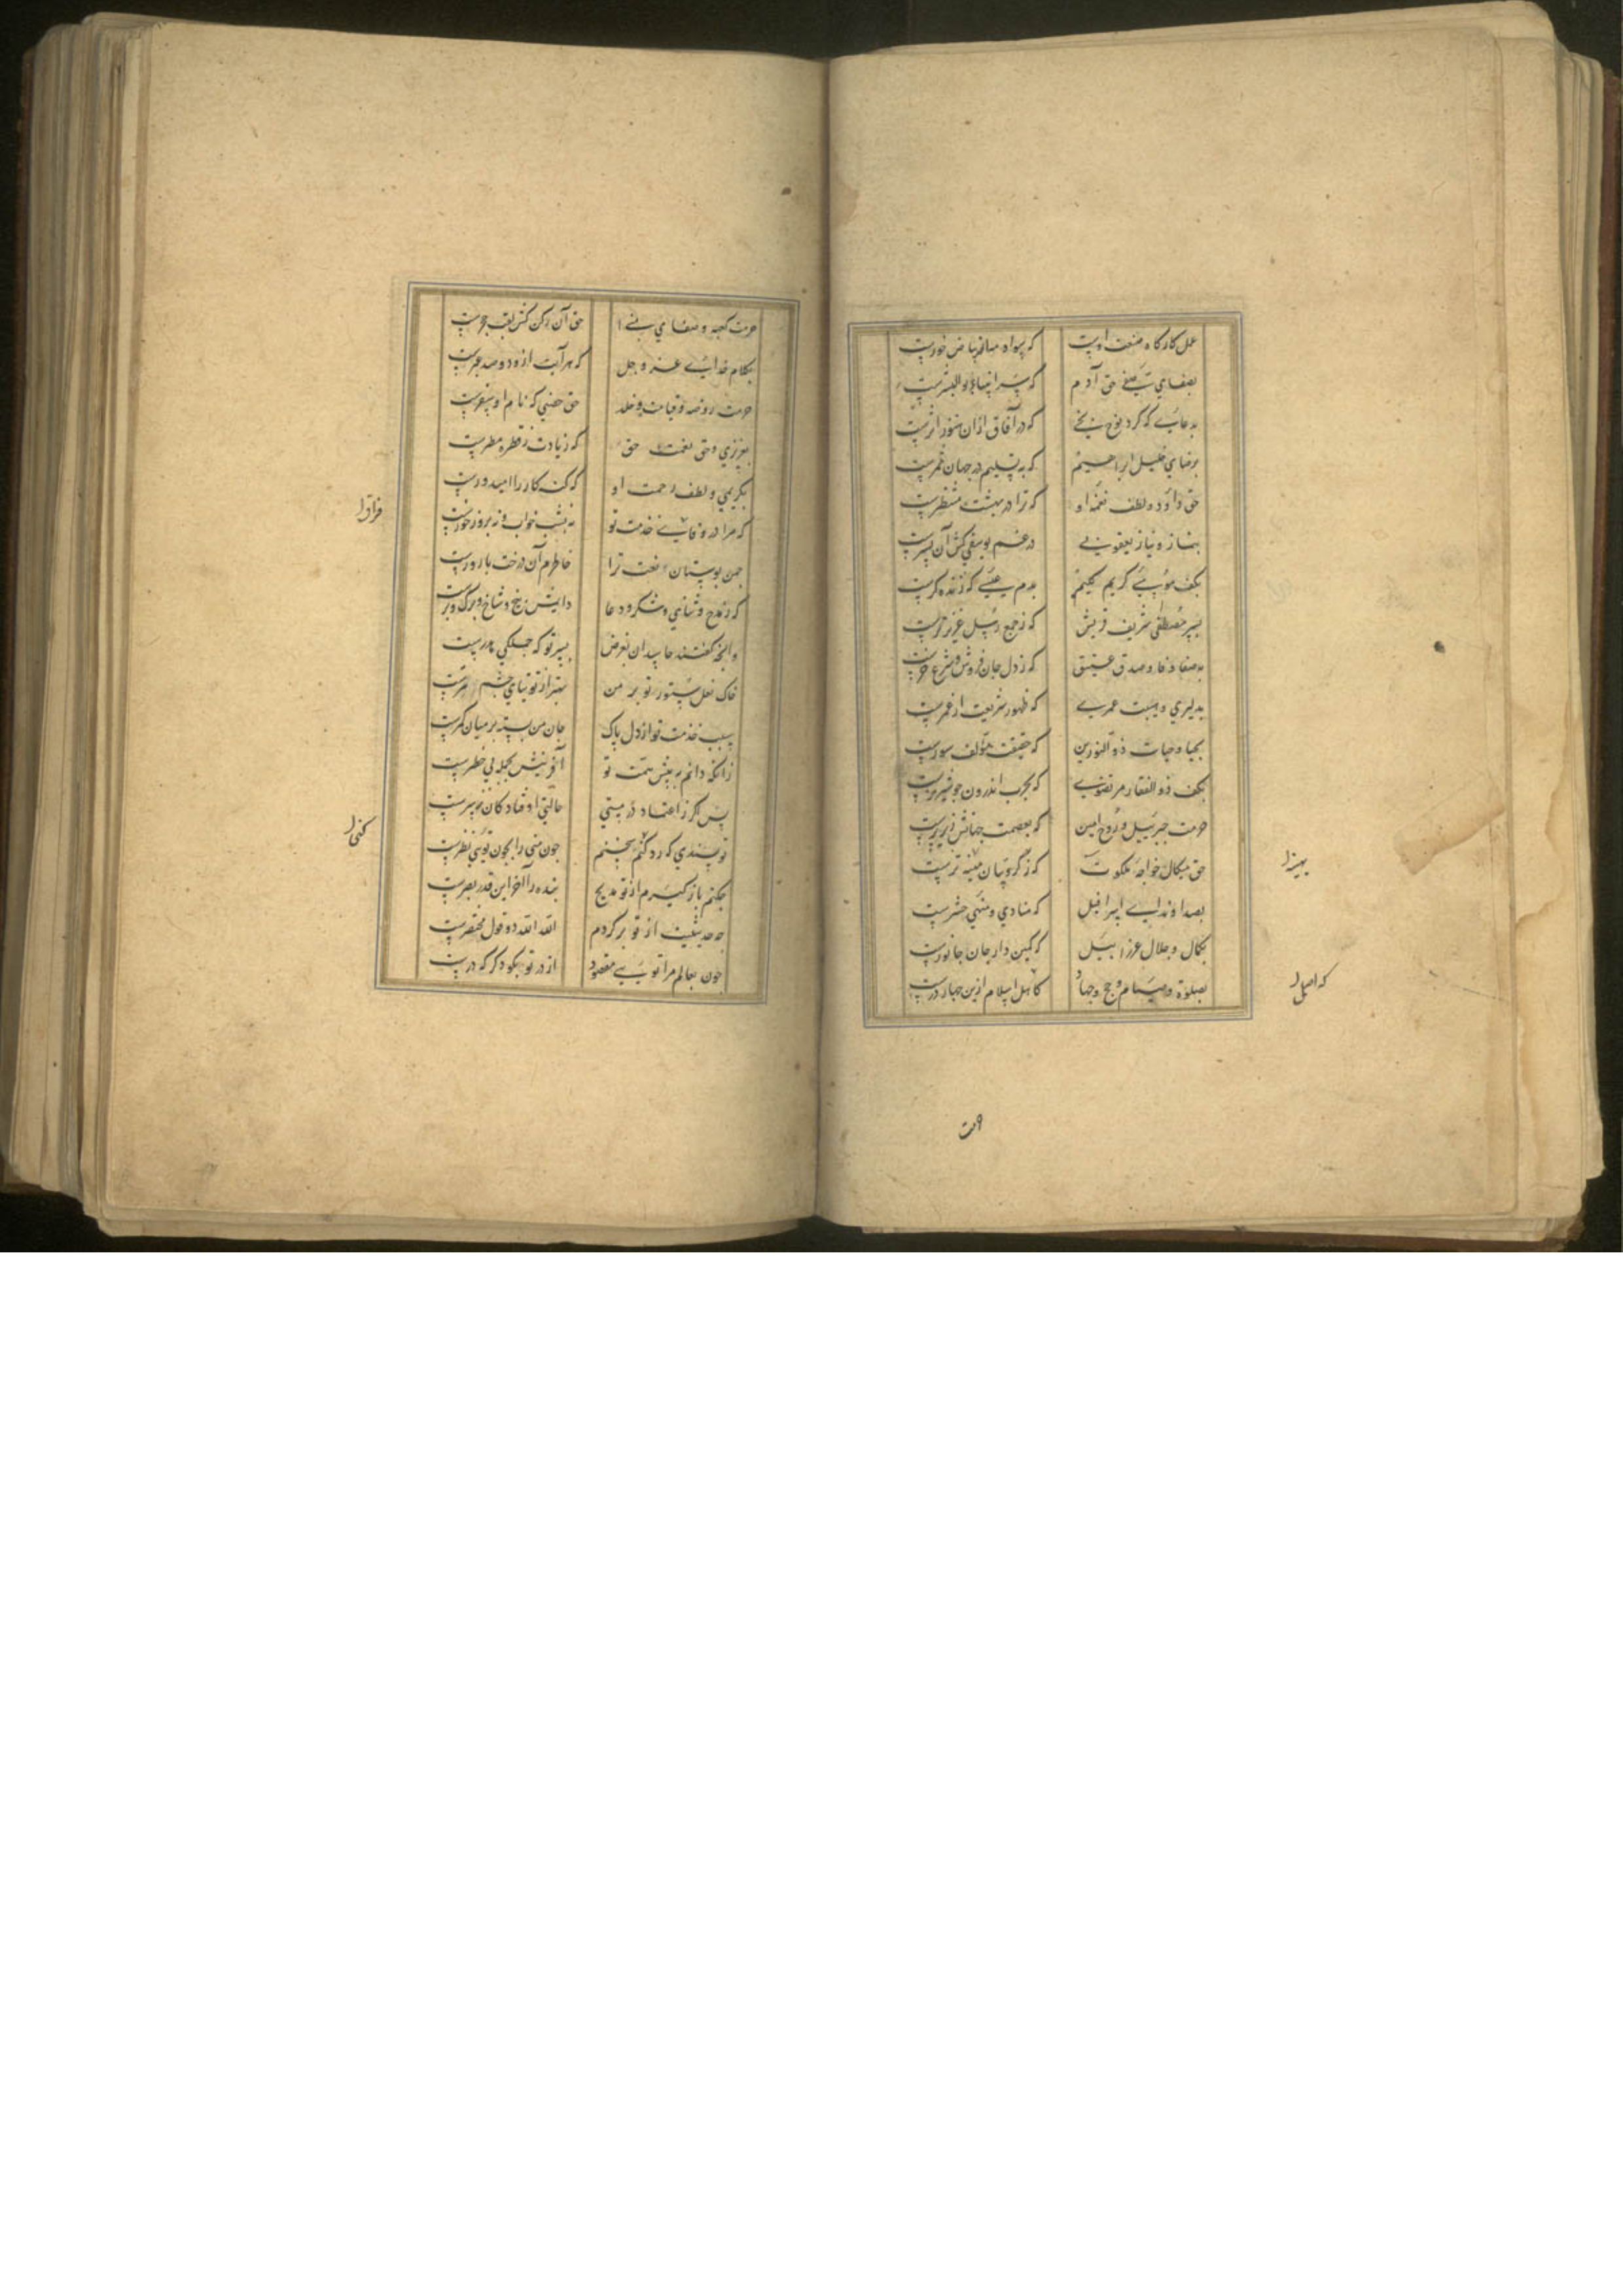 عمل کارکاه صنعت اوست که سواد مسا و بیاض خورست
بصفای صفی حق آدم که سر انبیاء و بوالبشرست
بدعایی که کرد نوح نجی که در آفاق ازان هنوز اثرست
برضای خلیل ابراهیم که به تسلیم در جهان ثمرست
حق داود و لطف نغمه او که ترا در بهشت منتظرست
بنماز و نیاز یعقوبی در غم یوسفی کش آن پسرست
بکف موسی کریم کلیم بدم عیسی که زنده کرست
بسر مصطفی شریف قریش که ز جمع رسل عزیزترست
بصفا و وفا و صدق عتیق که ز دل جان فروش و شرع خرست
بدلیری و هیبت عمری که ظهور شریعت از عمرست
بحیا و حیات ذو النورین که حقیقت مؤلف سورست
بکف ذو الفقار مرتضوی که بحرب اندرون چو شیر نرست
حرمت جبرئیل و روح امین که بعصمت جهانش زیر پرست
حق میکال خواجه ملکوت که ز کروبیان مینه ترست
بصدا و ندای اسرافیل که منادی و منهی حشرست
بکمال و جلال عزرائیل که کمین دار جان جانورست
بصلوة و صیام و حج و جهاد کاهل اسلام ازین چهار درست
حرمت کعبه و صفای منی حق آن رکن کش لقب حجرست
بکلام خدای عز و جل که هر آیت ازو دو صد عبرست
حرمت روضه و قیامت و خلد حق حصنی که نام او سقرست
بعزیزی و حق نعمت حق که زیادت ز قطره مطرست
بکریمی و لطف و رحمت او که کنه کار را امید درست
که مرا در وفای خدمت تو نه بشب خواب و نه بروز خورست
چمن بوستان نعت ترا خاطرم آن درخت بارورست
که ز مدح و ثنای و شکر و دعا دایمش بیخ و شاخ و برک و برست
وانچه کفتند حاسدان بغرض بسر تو که جملکی هدرست
خاک نعل ستور تو بر من بهتر از توتیای چشم سرست
بسبب خدمت تو از دل پاک جان من بسته بر میان کمرست
زانکه دانم بر بیش همت تو آفرینش بجمله بی خطرست
پس اکر ز اعتماد در مستی حالتی اوفتاد کان نه سرست
تو پسندی که رد کنی سخنم چون منی را بچون تویی نظرست
چکنم باز کیرم از تو مدیح بنده را آخر این قدر بصرست
چه حدیثیست از تو بر کردم الله الله دو قول مختصرست
چون بعالم مرا تویی مقصود از در تو بکو دکر که درست